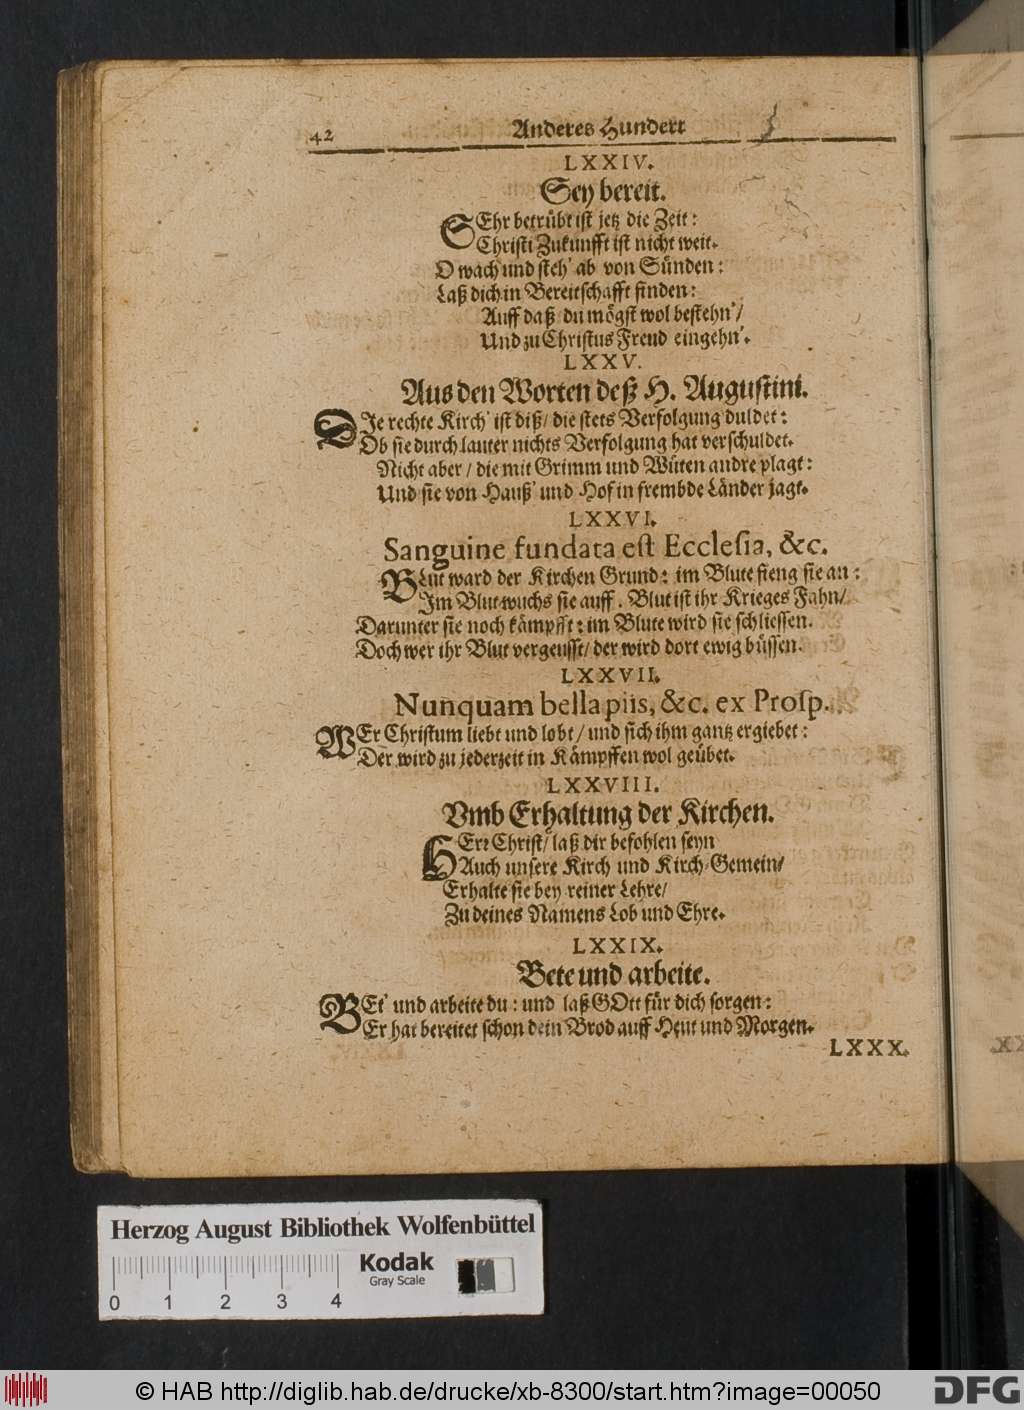 42 Anderes Hundert
LXXIV.
Sey bereit.
SEhr betrübt ist jetz die Zeit:
Christi Zukunfft ist nicht weit.
O wach und steh' ab von Sünden:
Laß dich in Bereitschafft finden:
Auff daß du mögst wol bestehn'/
Und zu Christus Freud eingehn'.
LXXV.
Aus den Worten deß H. Augustini.
DJe rechte Kirch' ist diß/ die stets Verfolgung duldet:
Ob sie durch lauter nichts Verfolgung hat verschuldet.
Nicht aber / die mit Grimm und Wüten andre plagt:
Und sie von Hauß' und Hof in frembde Länder jagt.
LXXVI.
Sanguine fundata est Ecclesia, &c.
BLut ward der Kirchen Grund: im Blute fieng sie an:
Jm Blut wuchs sie auff. Blut ist ihr Krieges Fahn/
Darunter sie noch kämpfft: im Blute wird sie schliessen.
Doch wer ihr Blut vergeusst/ der wird dort ewig büssen.
LXXVII.
Nunquam bella piis, &c. ex Prosp.
WEr Christum liebt und lobt/ und sich ihm gantz ergiebet:
Der wird zu jederzeit in Kämpffen wol geübet.
LXXVIII.
Vmb Erhaltung der Kirchen.
HErr Christ/ laß dir befohlen seyn
Auch unsere Kirch und Kirch-Gemein/
Erhalte sie bey reiner Lehre/
Zu deines Namens Lob und Ehre.
LXXIX.
Bete und arbeite.
BEt' und arbeite du: und laß GOtt für dich sorgen:
Er hat bereitet schon dein Brod auff Heut und Morgen.
LXXX.
Herzog August Bibliothek Wolfenbüttel
Kodak
Gray Scale
0 1 2 3 4
© HAB http://diglib.hab.de/drucke/xb-8300/start.htm?image=00050
DFG